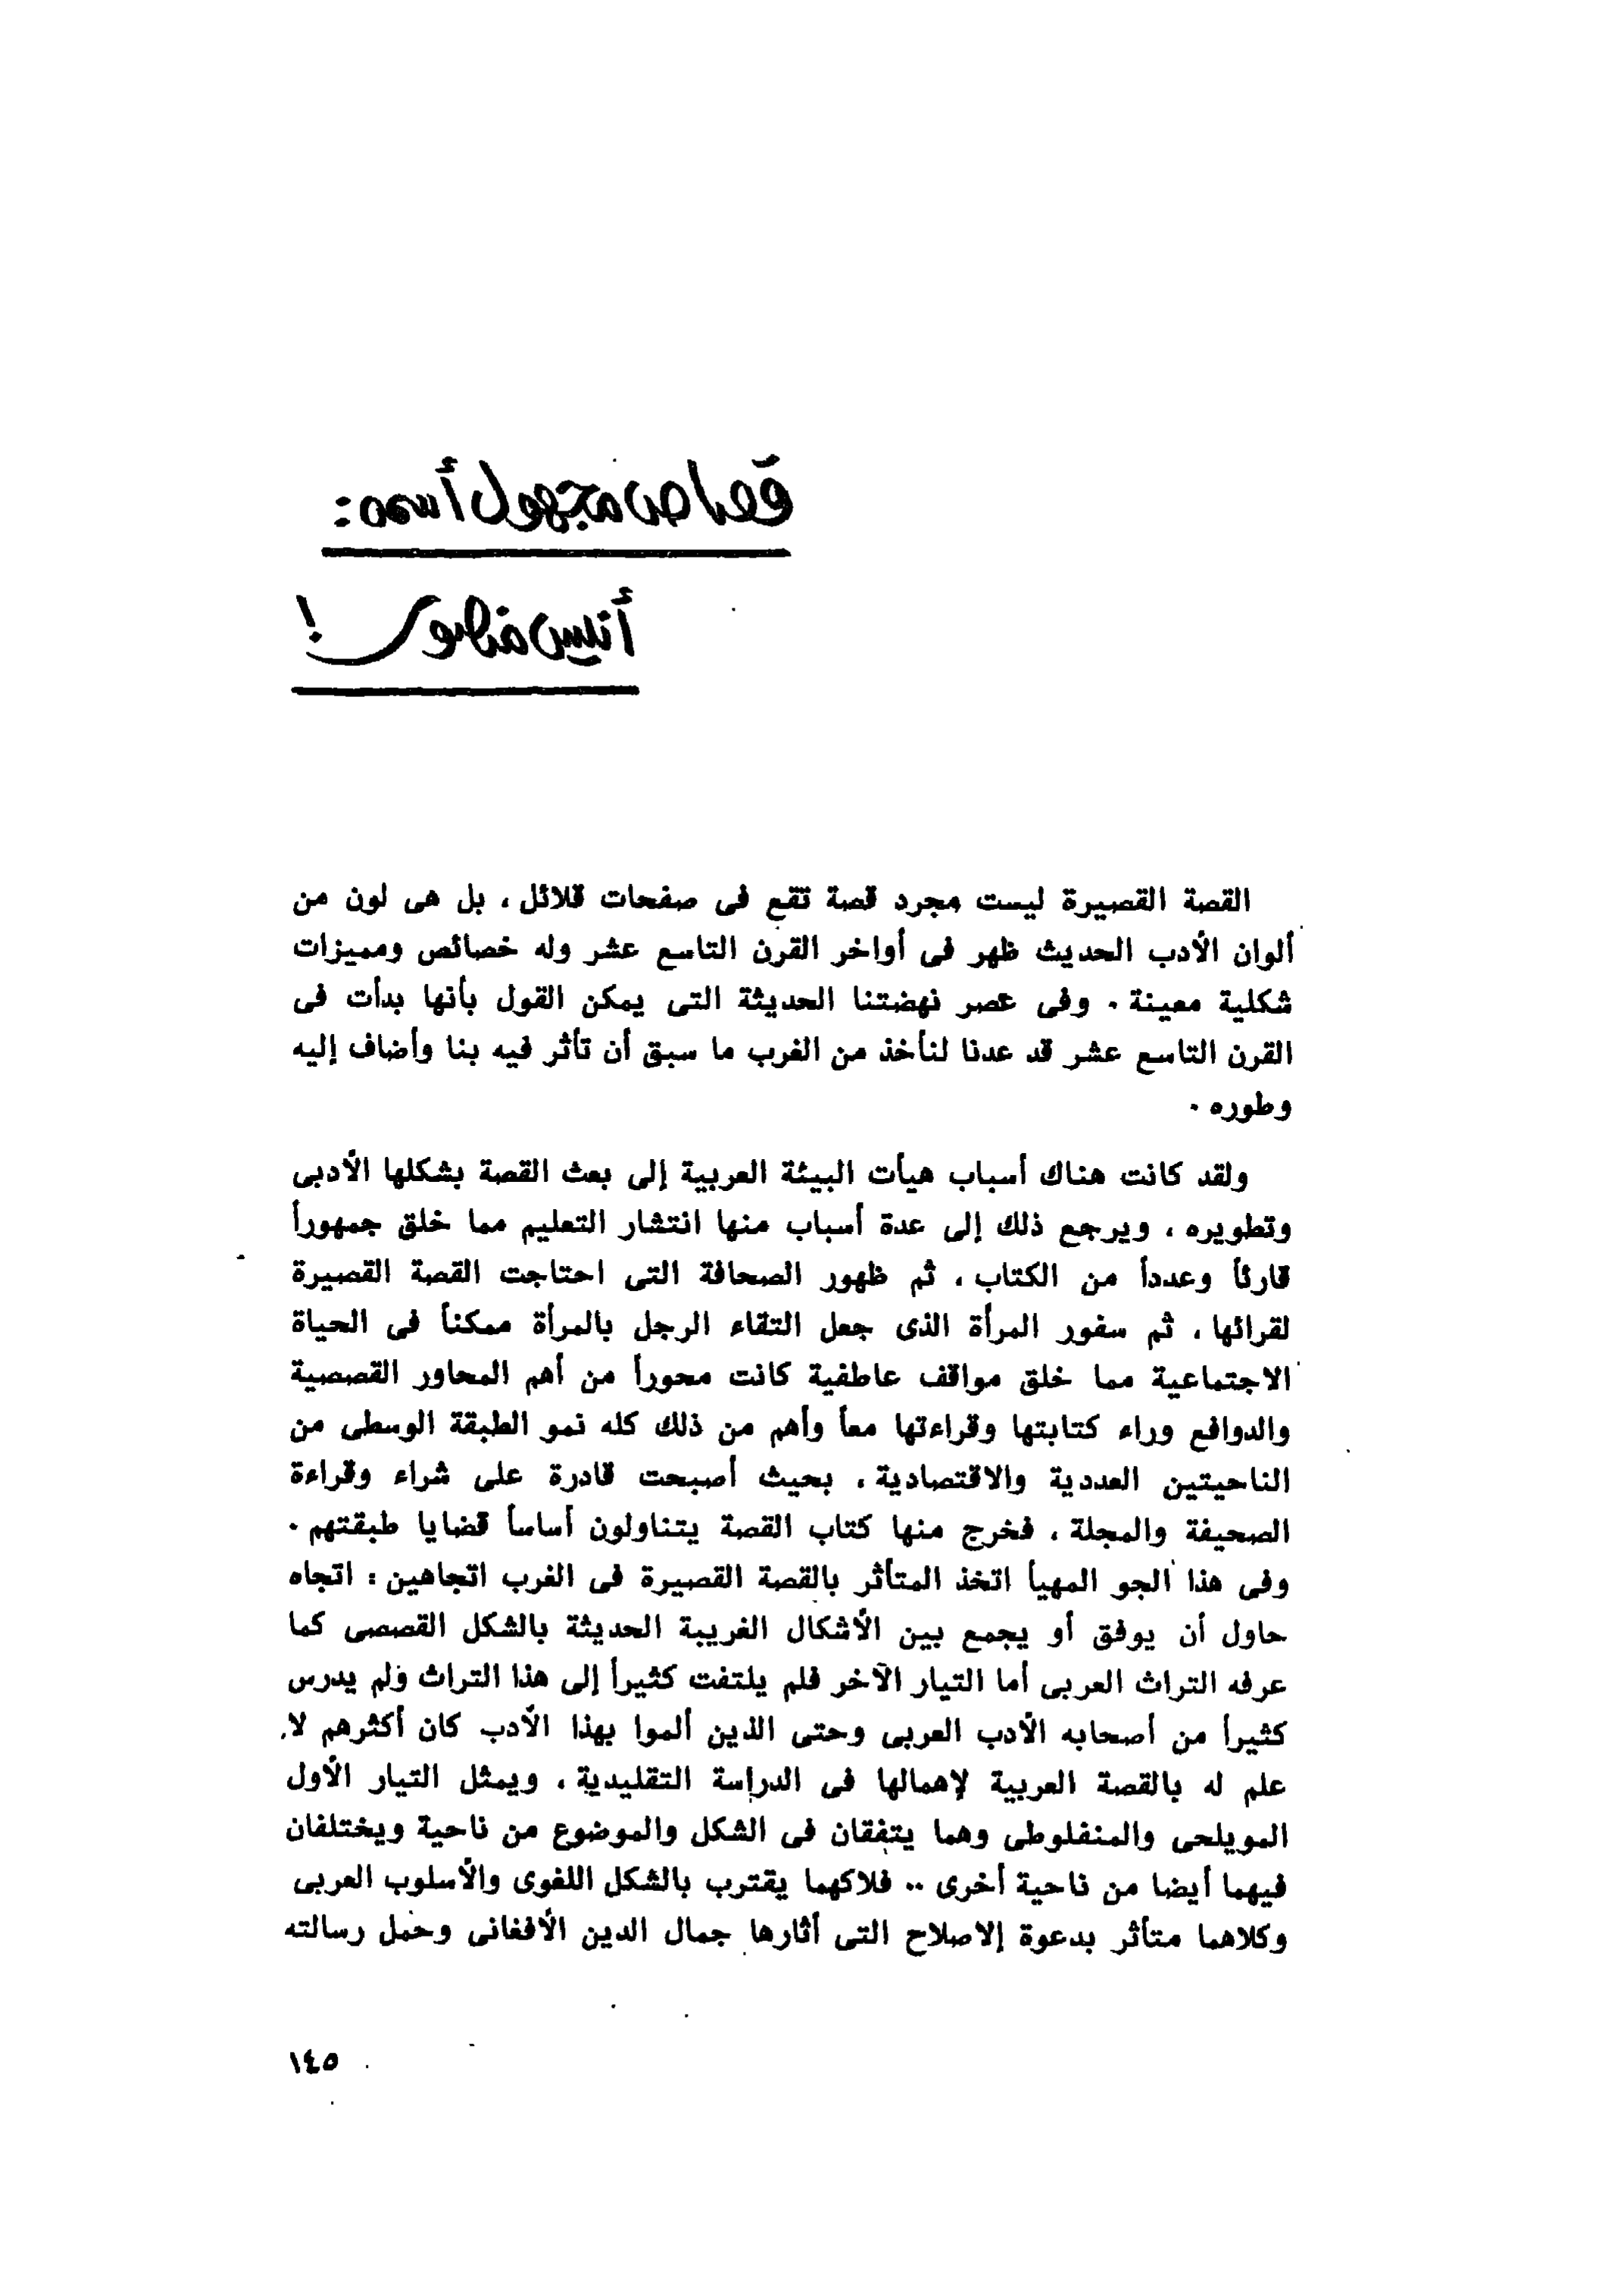 قصاص مجهول أسمه :
أنيس !
القصة القصيرة ليست مجرد قصة تقع فى صفحات قلائل ، بل هى لون من
ألوان الأدب الحديث ظهر فى أواخر القرن التاسع عشر وله خصائص ومميزات
شكلية معينة . وفى عصر نهضتنا الحديثة التى يمكن القول بأنها بدأت فى
القرن التاسع عشر قد عدنا لنأخذ من الغرب ما سبق أن تأثر فيه بنا وأضاف إليه
وطوره .
ولقد كانت هناك أسباب هيأت البيئة العربية إلى بعث القصة بشكلها الأدبى
وتطويره ، ويرجع ذلك إلى عدة أسباب منها انتشار التعليم مما خلق جمهوراً
قارئاً وعدداً من الكتاب ، ثم ظهور الصحافة التى احتاجت القصة القصيرة
لقرائها ، ثم سفور المرأة الذى جعل التقاء الرجل بالمرأة ممكناً فى الحياة
الاجتماعية مما خلق مواقف عاطفية كانت محوراً من أهم المحاور القصصية
والدوافع وراء كتابتها وقراءتها معاً وأهم من ذلك كله نمو الطبقة الوسطى من
الناحيتين العددية والاقتصادية ، بحيث أصبحت قادرة على شراء وقراءة
الصحيفة والمجلة ، فخرج منها كتاب القصة يتناولون أساساً قضايا طبقتهم .
وفى هذا الجو المهيأ اتخذ المتأثر بالقصة القصيرة فى الغرب اتجاهين : اتجاه
حاول أن يوفق أو يجمع بين الأشكال الغريبة الحديثة بالشكل القصصى كما
عرفه التراث العربى أما التيار الآخر فلم يلتفت كثيراً إلى هذا التراث ولم يدرس
كثيراً من أصحابه الأدب العربى وحتى الذين ألموا بهذا الأدب كان أكثرهم لا
علم له بالقصة العربية لإهمالها فى الدراسة التقليدية ، ويمثل التيار الأول
المويلحى والمنفلوطى وهما يتفقان فى الشكل والموضوع من ناحية ويختلفان
فيهما أيضا من ناحية أخرى .. فلاكهما يقترب بالشكل اللغوى والأسلوب العربى
وكلاهما متأثر بدعوة إلاصلاح التى أثارها جمال الدين الأفغانى وحمل رسالته
١٤٥